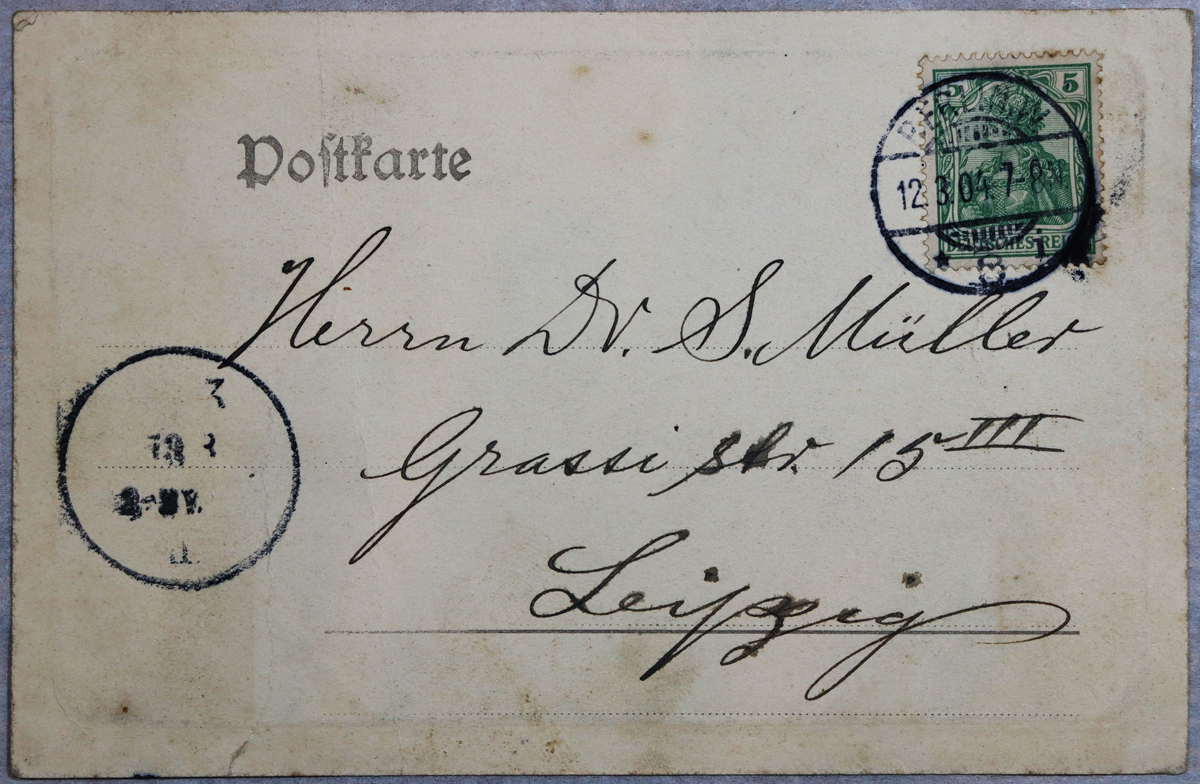 Postkarte
5 5
BERLIN W
12.3.04. 7-8N
* 8 *
DEUTSCHES REICH
Herrn Dr. S. Müller
Grassi str. 15 III
Leipzig